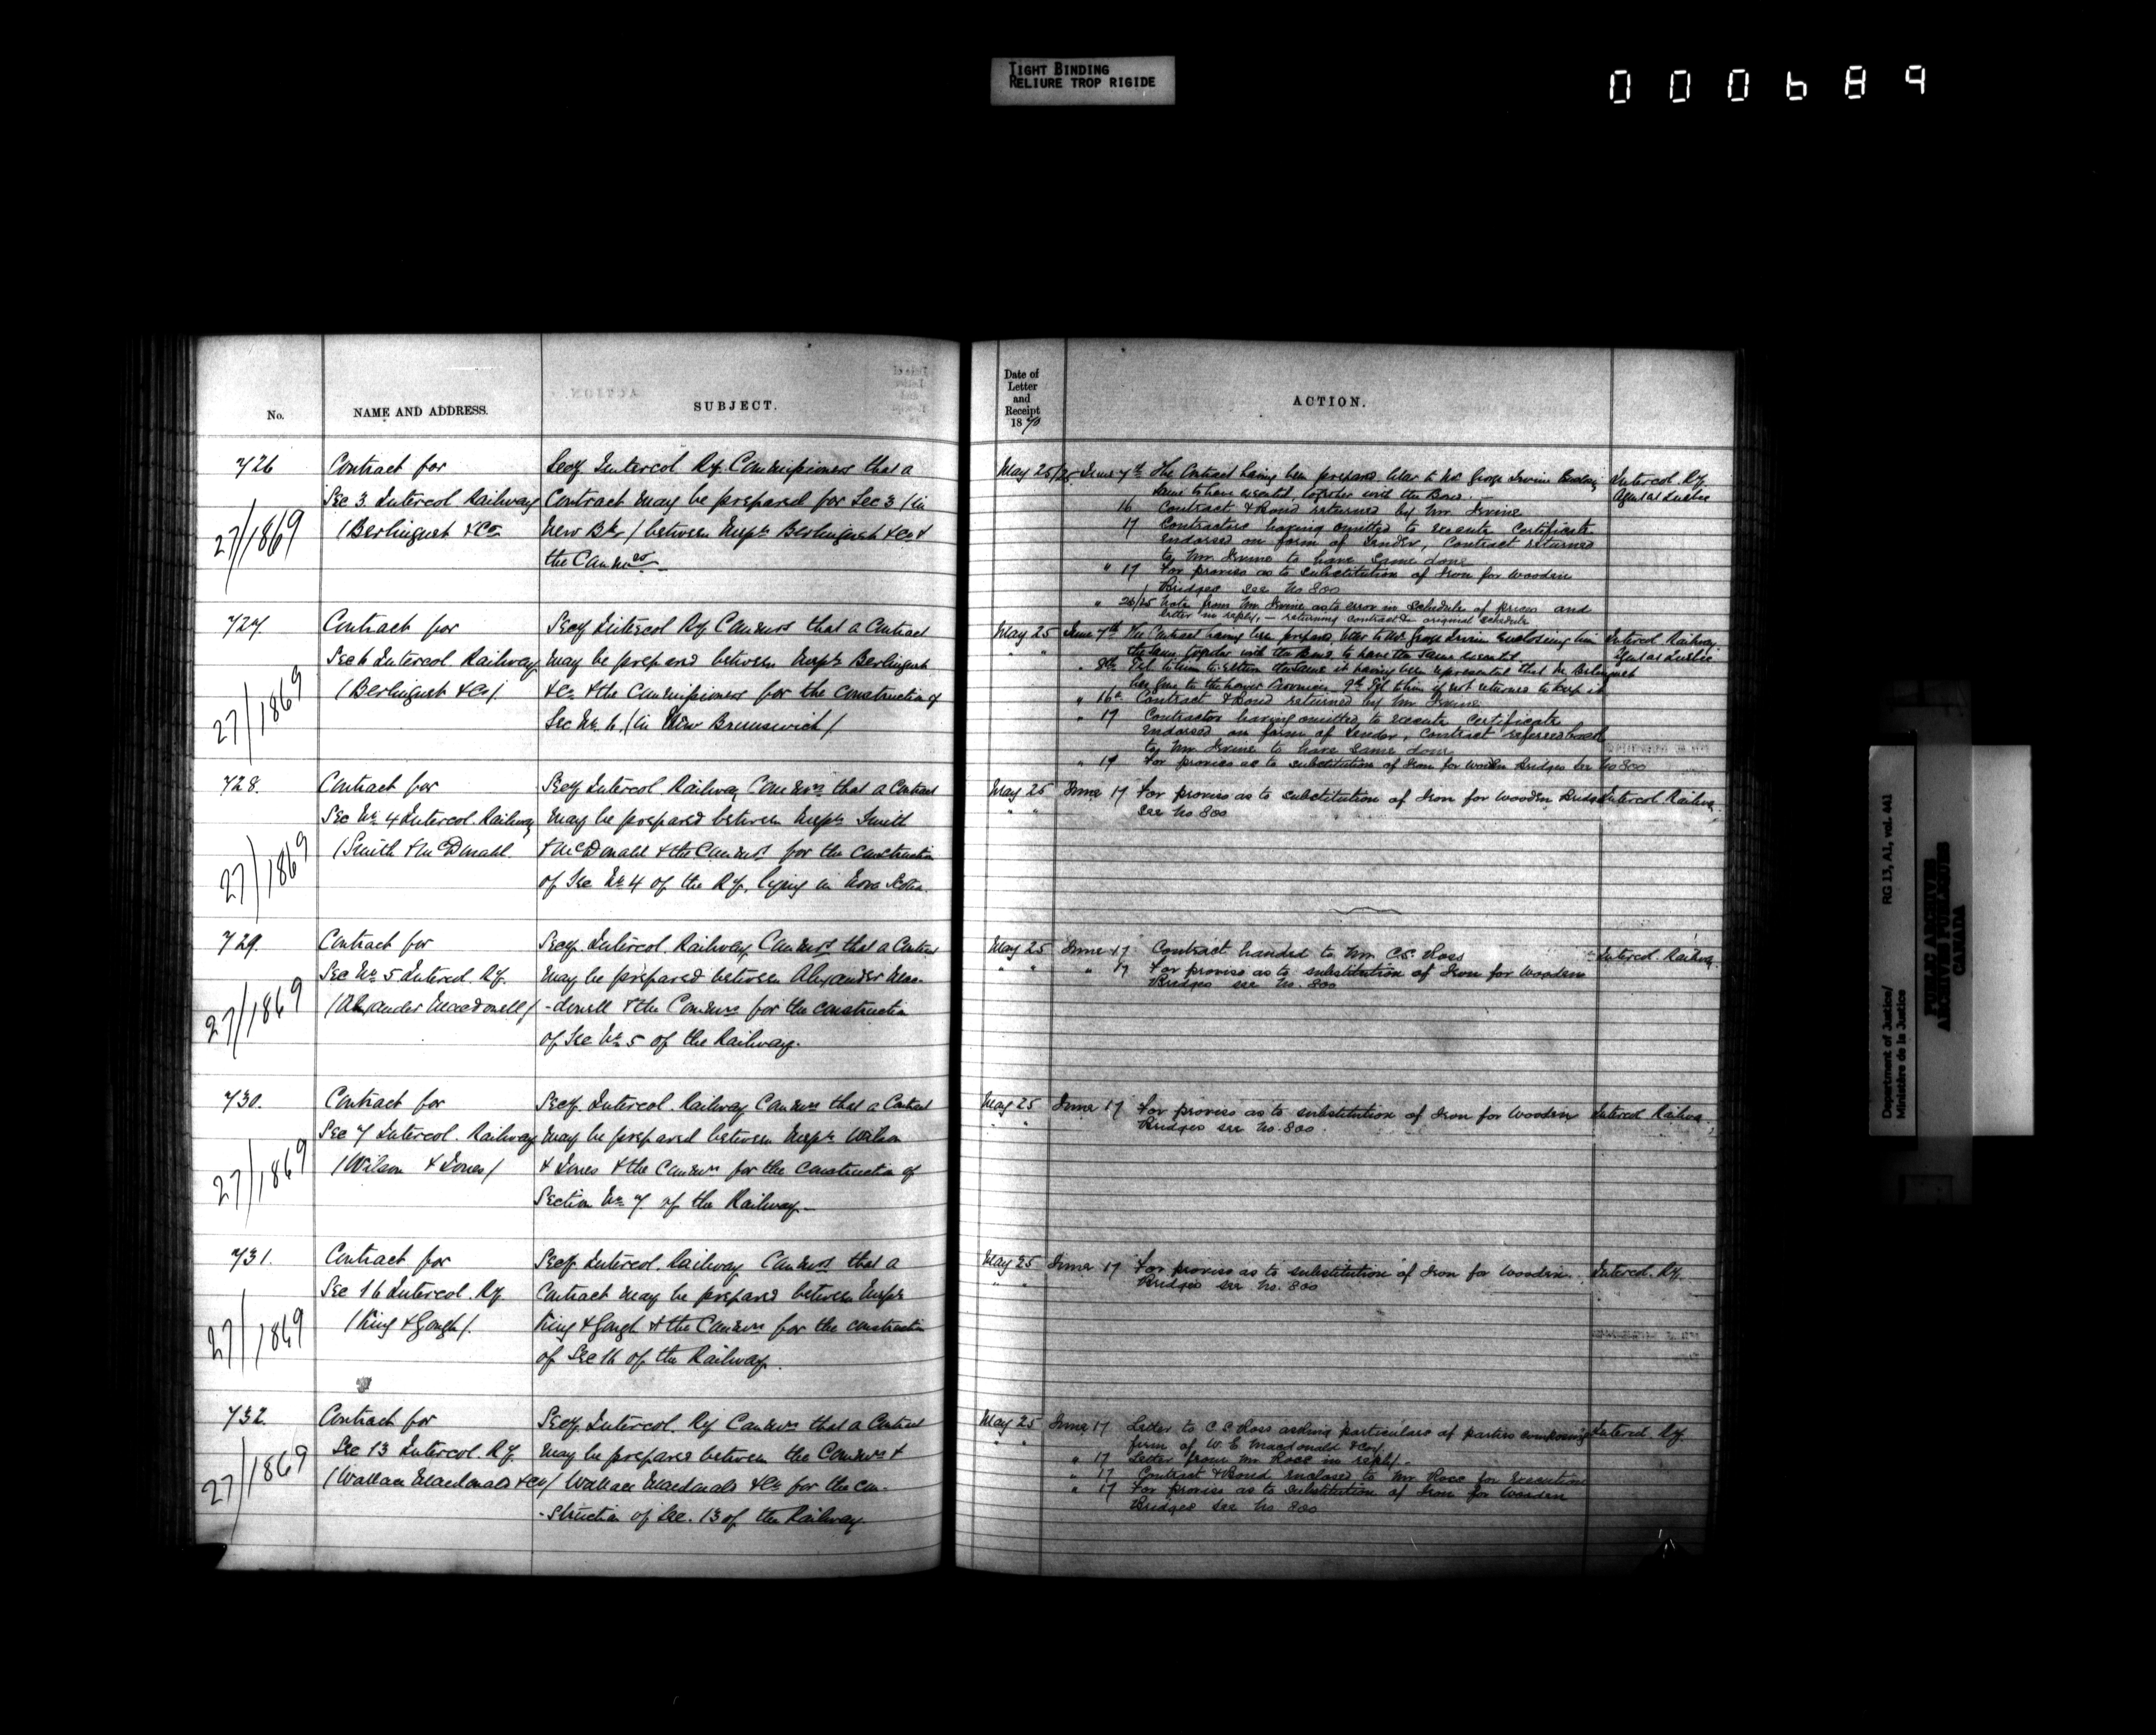 TIGHT BINDING
RELIURE TROP RIGIDE
000689
No.
NAME AND ADDRESS.
SUBJECT.
726
Contract for
Sec 3 Intercol Railway
(Berlinguet & Co
27/1869
Secy Intercol Ry. Commissioners that a
Contract may be prepared for Sec 3 (in
New Bk) between Messrs Berlinguet & Co &
the Commrs
727.
Contract for
Sec 6 Intercol. Railway
(Berlinguet & Co)
27/1869
Secy Intercol Ry Commrs that a Contract
may be prepared between Messrs Berlinguet
& Co & the Commissioners for the construction of
Sec No. 6. (in New Brunswick)
728.
Contract for
Sec No 4 Intercol. Railway
(Smith & McDonald.
27/1869
Secy Intercol. Railway Commrs that a Contract
may be prepared between Messrs Smith
& McDonald & the Commrs for the construction
of Sec No 4 of the Ry. lying in Nova Scotia.
729.
Contract for
Sec No 5 Intercol. Ry.
(Alexander Macdonell)
27/1869
Secy. Intercol. Railway Commrs that a Contract
may be prepared between Alexander Mac-
-donell & the Commrs for the construction
of Sec No 5 of the Railway.
730.
Contract for
Sec 7 Intercol. Railway
(Wilson & Jones)
27/1869
Secy. Intercol. Railway Commrs that a Contract
may be prepared between Messrs Wilson
& Jones & the Commrs for the construction of
Section No 7. of the Railway.—
731.
Contract for
Sec 16 Intercol. Ry.
(King & Gough).
27/1869
Secy. Intercol. Railway Commrs that a
Contract may be prepared between Messrs
King & Gough & the Commrs for the construction
of Sec 16 of the Railway.
732.
Contract for
Sec 13 Intercol. Ry.
(Wallace Macdonald & Co)
27/1869
Secy. Intercol. Ry Commrs that a Contract
may be prepared between the Commrs &
Wallace Macdonald & Co for the con-
-struction of Sec. 13 of the Railway.
Date of
Letter
and
Receipt
1870
ACTION.
May 25/25 June 7th The Contract having been prepared letter to Mr George Irvine Intercol. Ry.
same to have executed, together with the Bond.—
16 Contract & Bond returned by Mr. Irvine
17 Contractors having omitted to execute Certificate
Endorsed on form of Tender, Contract returned
to Mr. Irvine to have same done
" 17 For proviso as to substitution of Iron for wooden
Bridges see No 800
" Note from Mr. Irvine as to error in Schedule of prices and
letter in reply, — returning contract & original schedule
May 25 June 7th The Contract having been prepared, letter to Mr. George Irvine enclosing him Intercol Railway
the same together with the Bond, to have the same executed
" 8th Tel. to him to return the same it having been represented that Mr Berlinguet
has gone to the lower Provinces 9th Tel. to him if not returned to keep it
" 16th Contract & Bond returned by Mr Irvine
" 17 Contractor having omitted to execute Certificate
Endorsed on form of Tender, Contract referred back
to Mr. Irvine to have same done
" 17 For proviso as to substitution of Iron for wooden Bridges see No 800
May 25 June 17 For proviso as to substitution of Iron for wooden Bridges Intercol. Railway
" " see No 800
May 25 June 17 Contract handed to Mr C.S. Ross Intercol. Railway
" " " 17 For proviso as to substitution of Iron for wooden
Bridges see No. 800
May 25 June 17 For proviso as to substitution of Iron for wooden Intercol. Railway
Bridges see No. 800.
May 25 June 17 For proviso as to substitution of Iron for wooden Intercol. Ry.
" " Bridges see No. 800
May 25 June 17 Letter to C.S. Ross asking particulars of parties composing Intercol Ry.
" " firm of W. E. Macdonald & Coy.
" 17 Letter from Mr. Ross in reply.
" 17 Contract & Bond enclosed to Mr. Ross for Execution
" 17 For proviso as to substitution of Iron for wooden
Bridges see No 800
Department of Justice/
Ministère de la Justice
RG 13, A1, vol. 441
PUBLIC ARCHIVES
ARCHIVES PUBLIQUES
CANADA